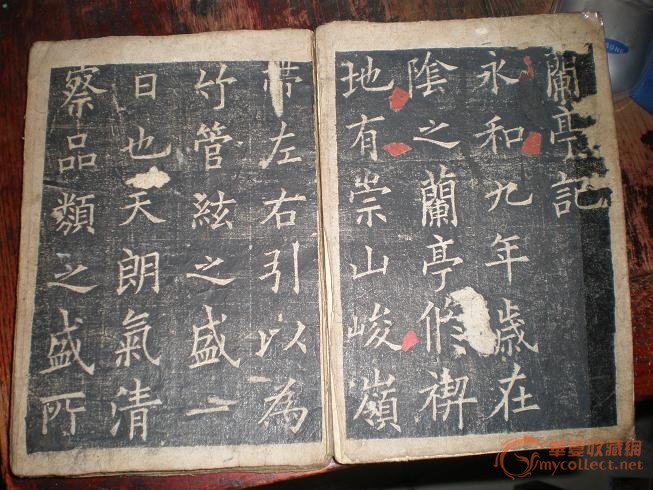 蘭亭記
永和九年歲在
陰之蘭亭修禊
地有崇山峻嶺
帶左右引以為
竹管絃之盛一
日也天朗氣清
察品類之盛所
華夏收藏網
mycollect.net